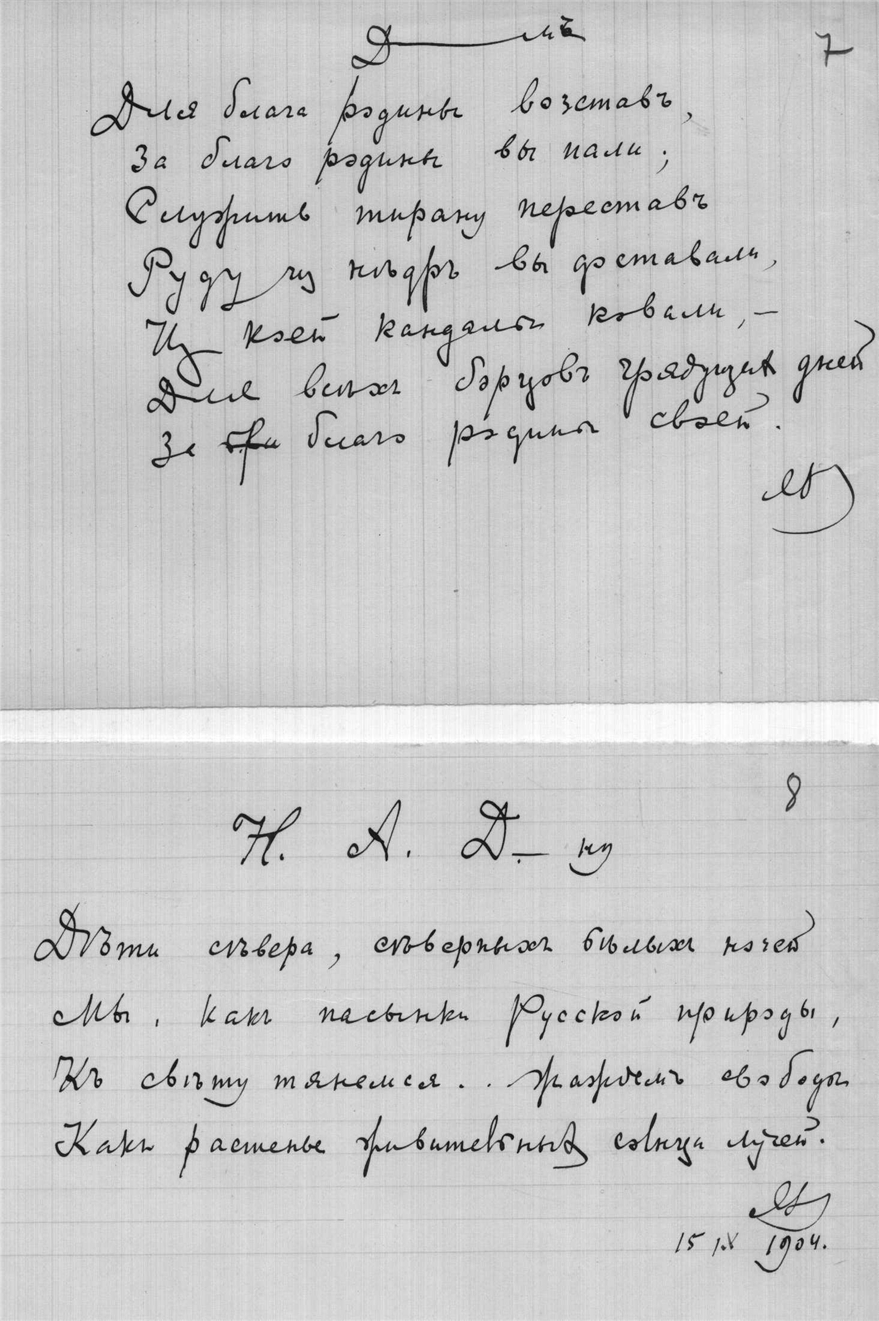 Д——мъ
7
Для блага родины возставъ,
За благо родины вы пали;
Служить тирану переставъ
Руду из нѣдръ вы доставали,
Из коей кандалы ковали, —
Для всѣхъ борцовъ грядущих дней
За благо родины своей.
8
Н. А. Д.— ну
Дѣти сѣвера, сѣверныхъ бѣлыхъ ночей
Мы, какъ пасынки Русской природы,
Къ свѣту тянемся.. жаждемъ свободы
Какъ растенье живительных солнца лучей.
15 IX 1904.